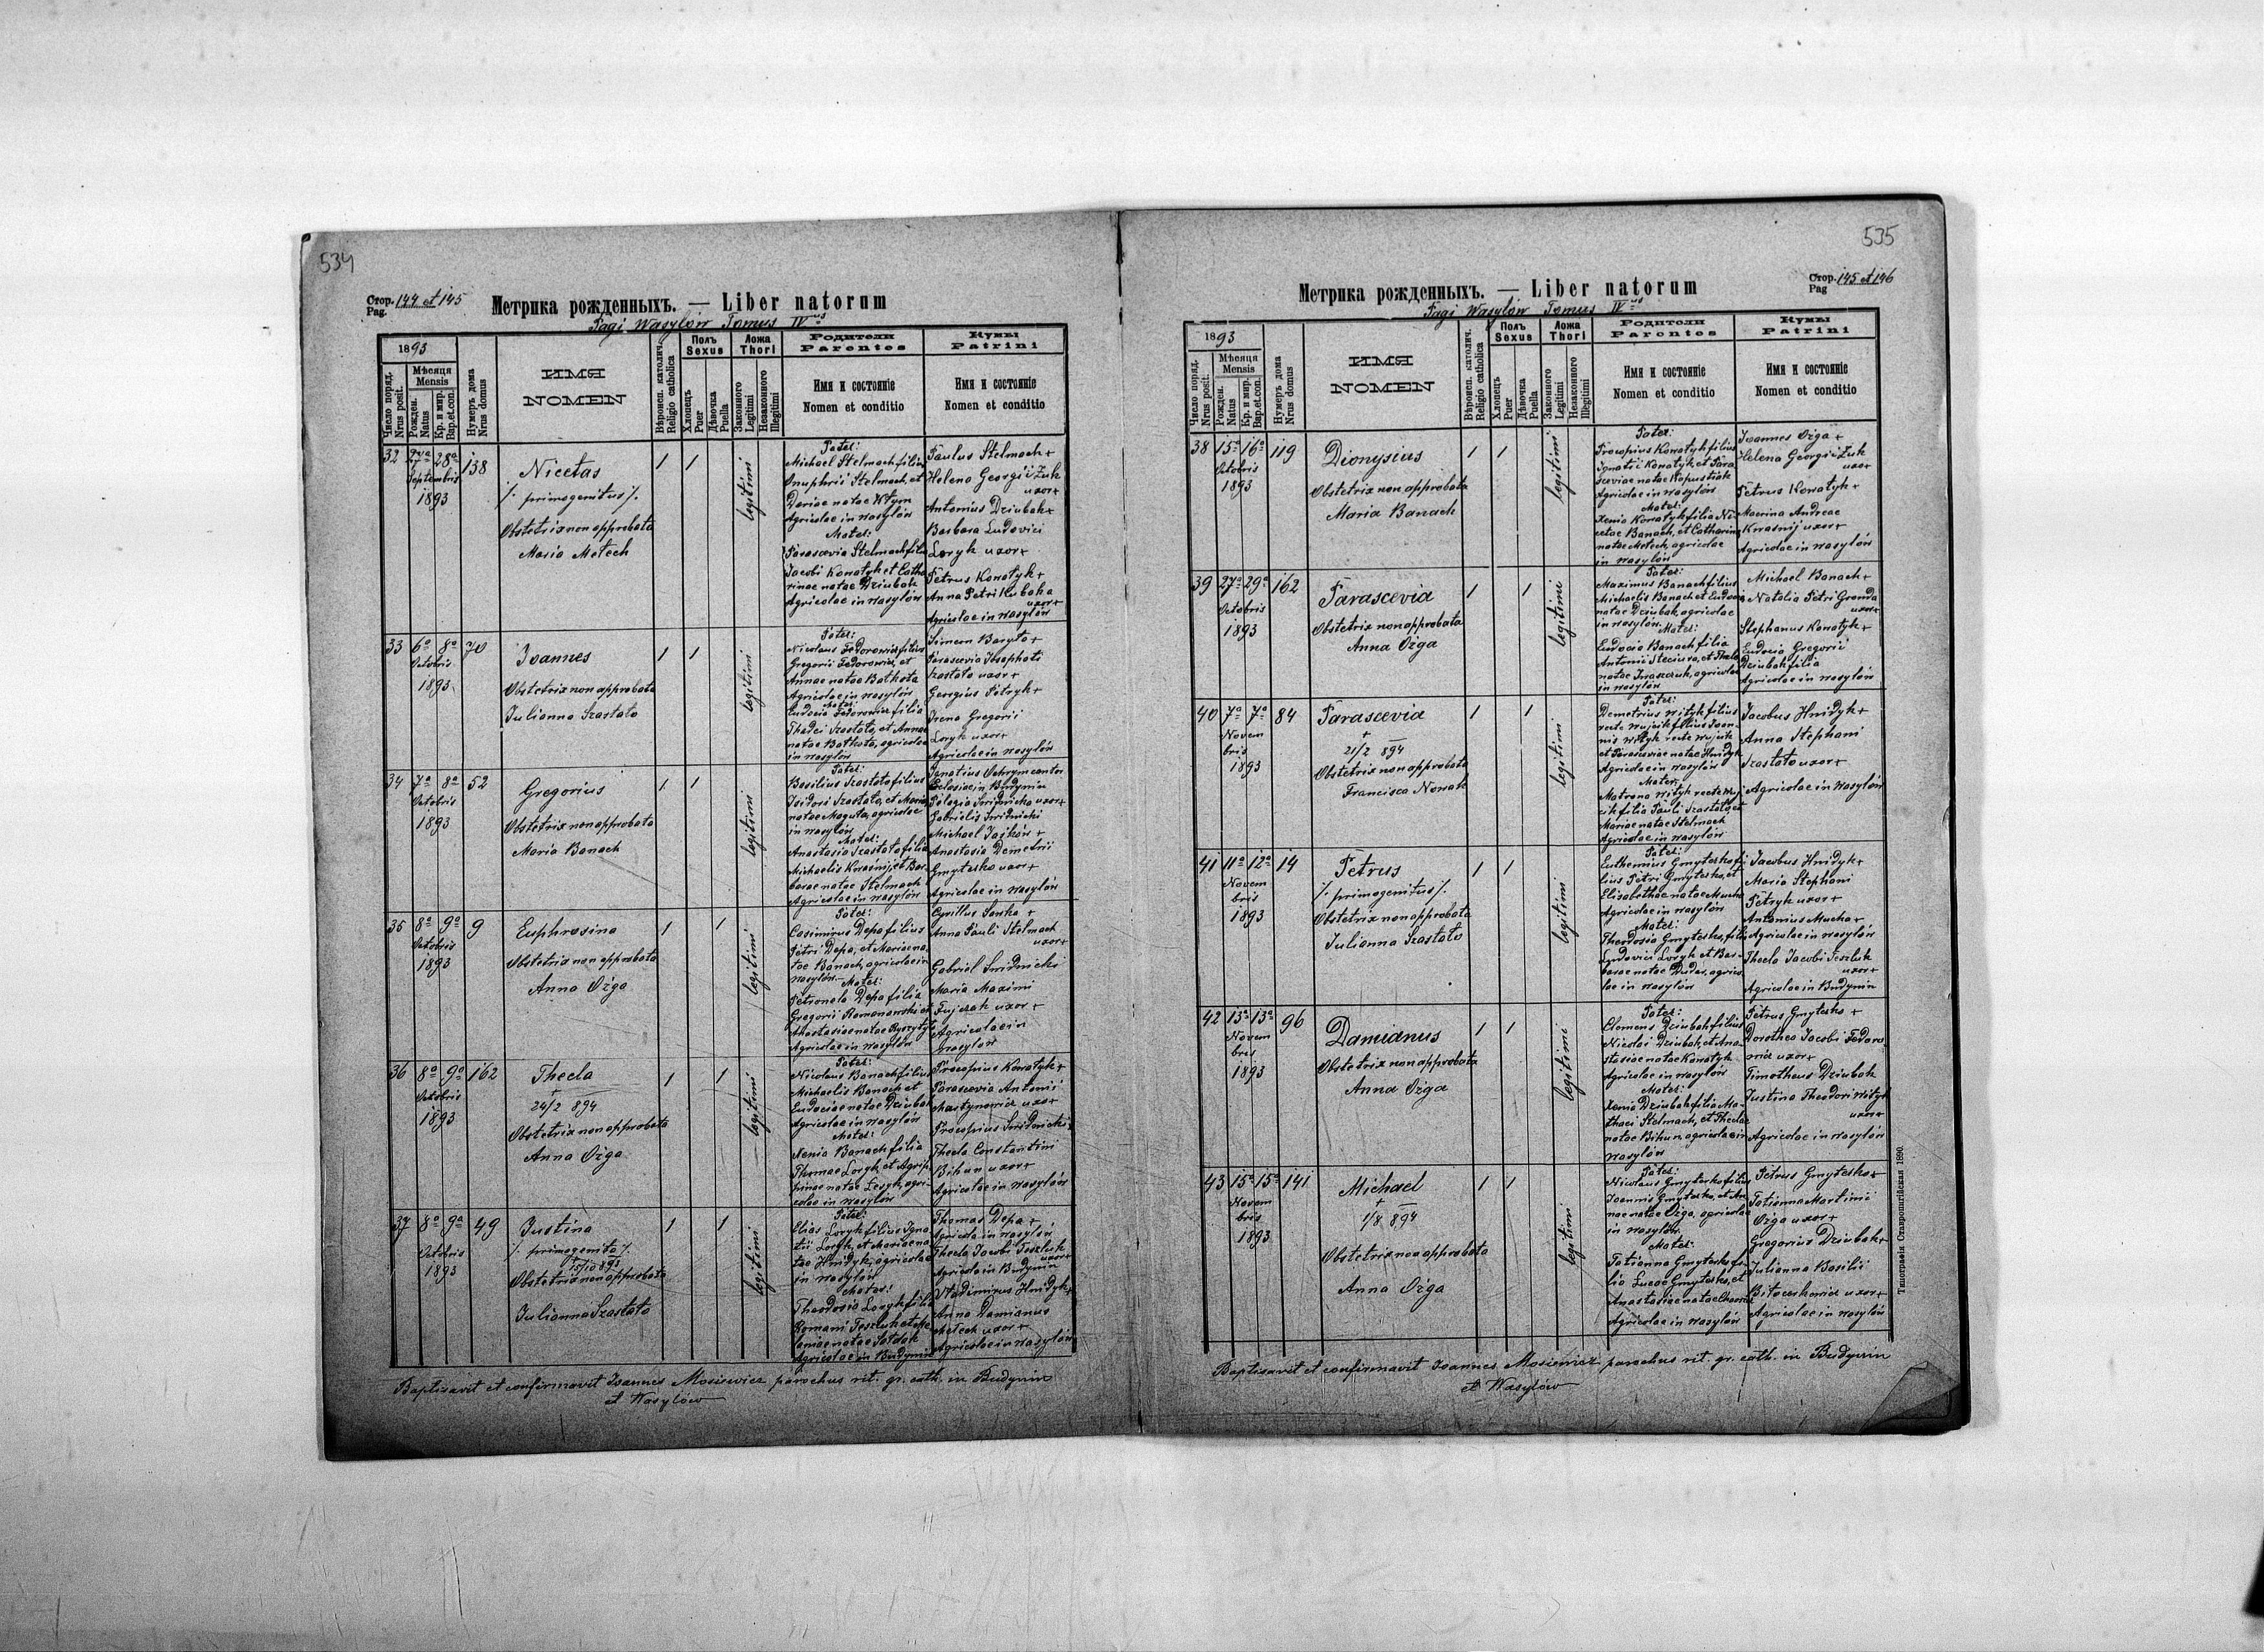 534
Стор. 144 et 145
Pag.
Метрика рожденныхъ. — Liber natorum
Pagi Wasylów Tomus IVus
1893
Число поряд. Nrus posit.
Мѣсяця
Mensis
Рожден. Natus
Кр. и мир. Bap.et.con.
Нумеръ дома Nrus domus
ИМЯ
NOMEN
Вѣроисп. католич. Religio catholica
Полъ
Sexus
Хлопецъ Puer
Дѣвочка Puella
Ложа
Thori
Законного Legitimi
Незаконного Illegitimi
Родители
Parentes
Имя и состоянie
Nomen et conditio
Кумы
Patrini
Имя и состоянie
Nomen et conditio
32 27a 28a 138
Septembris
1893
Nicetas
/: primogenitus /.
Obstetrix non approbata
Maria Metech
1 1
legitimi
Pater:
Michael Stelmach filius
Onuphrii Stelmach, et
Dariae natae Wtym
Agricolae in Wasylów
Mater:
Parascevia Stelmach filia
Jacobi Konatyk et Catha
rinae natae Dziubak
Agricolae in Wasylów
Paulus Stelmach +
Helena Georgii Żuk
uxor +
Antonius Dziubak +
Barbara Ludovici
Loryk uxor +
Petrus Konatyk +
Anna Petri Kubaha
uxor +
Agricolae in Wasylów
33 6a 8a 70
Octobris
1893
Joannes
Obstetrix non approbata
Julianna Szastało
1 1
legitimi
Pater:
Nicolaus Fedorowicz filius
Gregorii Fedorowicz, et
Annae natae Bałkota
Agricolae in Wasylów
Mater:
Eudocia Fedorowicz filia
Thadei Szastało, et Annae
natae Bałkota, agricolae
in Wasylów
Simeon Baryła +
Parascevia Josaphati
Szastało uxor +
Georgius Petryk +
Irena Gregorii
Loryk uxor +
Agricolae in Wasylów
34 7a 8a 52
Octobris
1893
Gregorius
Obstetrix non approbata
Maria Banach
1 1
legitimi
Pater:
Basilius Szastało filius
Isidori Szastało, et Mariae
natae Maguta, agricolae
in Wasylów
Mater:
Anastasia Szastało filia
Michaelis Kraśnij, et Bar-
barae natae Stelmach
Agricolae in Wasylów
Ignatius Ochrym cantor
Eclesiae in Budynin
Pelagia Świdnicka uxor +
Gabrielis Świdnicki
Michael Jaśków +
Anastasia Demetrii
Gmyterko uxor +
Agricolae in Wasylów
35 8a 9a 9
Octobris
1893
Euphrosina
Obstetrix non approbata
Anna Ożga
1 1
legitimi
Pater:
Casimirus Depa filius
Petri Depa, et Mariae na
tae Banach, agricolae in
Wasylów
Mater:
Petronela Depa filia
Gregorii Romanowski et
Agricolae in Wasylów
Cyrillus Sanka +
Anna Pauli Stelmach
uxor +
Gabriel Świdnicki
Maria Maximi
Fujczak uxor +
Agricolae in
Wasylów
36 8a 9a 162
Octobris
1893
Thecla
+
24/2 894
Obstetrix non approbata
Anna Ożga
1 1
legitimi
Pater:
Nicolaus Banach filius
Michaelis Banach et
Eudociae natae Dziubak
Agricolae in Wasylów
Mater:
Xenia Banach filia
Thomae Loryk, et Agrip.
pinae natae Lesyk, agri-
colae in Wasylów
Procopius Konatyk +
Parascevia Antonii
Martynowicz uxor +
Procopius Świdnicki +
Thecla Constantini
Bihun uxor +
Agricolae in Wasylów
37 8a 9a 49
Octobris
1893
Justina
/: primogenita /.
+ 15/10 893
Obstetrix non approbata
Julianna Szastało
1 1
legitimi
Pater:
Elias Loryk filius Igna
tii Loryk, et Mariae na
tae Hnidyk, agricolae
in Wasylów
Mater:
Theodosia Loryk filia
Romani Teszluk et Me
laniae natae Sołdak
Agricolae in Budynin
Thomas Depa +
Agricola in Wasylów
Thecla Jacobi Teszluk
uxor +
Agricolae in Budynin
Vladimirus Hnidyk +
Anna Damianus
Metech uxor +
Agricolae in Wasylów
Baptisavit et confirmavit Joannes Mosiewicz parochus rit. gr. cath. in Budynin
et Wasylów
535
Стор. 145 et 146
Pag
Метрика рожденныхъ. — Liber natorum
Pagi Wasylów Tomus IVus
1893
Число поряд. Nrus posit.
Мѣсяця
Mensis
Рожден. Natus
Кр. и мир. Bap.et.con.
Нумеръ дома Nrus domus
ИМЯ
NOMEN
Вѣроисп. католич. Religio catholica
Полъ
Sexus
Хлопецъ Puer
Дѣвочка Puella
Ложа
Thori
Законного Legitimi
Незаконного Illegitimi
Родители
Parentes
Имя и состоянie
Nomen et conditio
Кумы
Patrini
Имя и состоянie
Nomen et conditio
38 15a 16a 119
Octobris
1893
Dionysius
Obstetrix non approbata
Maria Banach
1 1
legitimi
Pater:
Procopius Konatyk filius
Ignatii Konatyk, et Para
sceviae natae Kapustiak
Agricolae in Wasylów
Mater:
Xenia Konatyk filia Ni-
cetae Banach, et Catharinae
natae Metech, agricolae
in Wasylów
Joannes Ożga +
Helena Georgii Żuk
uxor +
Petrus Konatyk +
Macrina Andreae
Krasnij uxor +
Agricolae in Wasylów
39 27a 29a 162
Octobris
1893
Parascevia
Obstetrix non approbata
Anna Ożga
1 1
legitimi
Pater:
Maximus Banach filius
Michaelis Banach et Eudociae
natae Dziubak, agricolae
in Wasylów
Mater:
Eudocia Banach filia
Antonii Steciura, et Theclae
natae Iwaszczuk, agricolae
in Wasylów
Michael Banach +
Natalia Petri Gronda
uxor +
Stephanus Konatyk +
Eudocia Gregorii
Dziubak filia
Agricolae in Wasylów
40 7a 7a 84
Novem
bris
1893
Parascevia
+
21/2 894
Obstetrix non approbata
Francisca Nowak
1 1
legitimi
Pater:
Demetrius Wityk filius
recte Wujcik filius Joan-
nis Wityk recte Wujcik
et Parasceviae natae Hnidyk
Agricolae in Wasylów
Mater:
Matrona Wityk recte Wuj-
cik filia Pauli Szastało, et
Mariae natae Stelmach
Agricolae in Wasylów
Jacobus Hnidyk +
Anna Stephani
Szastało uxor +
Agricolae in Wasylów
41 11a 12a 14
Novem
bris
1893
Petrus
/: primogenitus /.
Obstetrix non approbata
Julianna Szastało
1 1
legitimi
Pater:
Euthemius Gmyterko fi
lius Petri Gmyterko, et
Elisabethae natae Mucha
Agricolae in Wasylów
Mater:
Theodosia Gmyterko, filia
Ludovici Loryk et Bar-
barae natae Dudar, agrico
lae in Wasylów
Jacobus Hnidyk +
Maria Stephani
Petryk uxor +
Antonius Mucha +
Agricolae in Wasylów
Thecla Jacobi Teszluk
uxor +
Agricolae in Budynin
42 13a 13a 96
Novem
bris
1893
Damianus
Obstetrix non approbata
Anna Ożga
1 1
legitimi
Pater:
Clemens Dziubak filius
Nicolai Dziubak, et Ana-
stasiae natae Konatyk
Agricolae in Wasylów
Mater:
Xenia Dziubak filia Ma-
thaei Stelmach, et Theclae
natae Bihun, agricolae in
Wasylów
Petrus Gmyterko +
Dorothea Jacobi Fedoro
wicz uxor +
Timotheus Dziubak
Justina Theodori Wityk
uxor +
Agricolae in Wasylów
43 15a 15a 141
Novem
bris
1893
Michael
+
1/8 894
Obstetrix non approbata
Anna Ożga
1 1
legitimi
Pater:
Nicolaus Gmyterko filius
Joannis Gmyterko, et An
nae natae Ożga, agricolae
in Wasylów
Mater:
Tatianna Gmyterko fi-
lia Lucae Gmyterko, et
Anastasiae natae
Agricolae in Wasylów
Petrus Gmyterko +
Tatianna Martini
Ożga uxor +
Gregorius Dziubak +
Julianna Basilii
uxor +
Agricolae in Wasylów
Baptisavit et confirmavit Joannes Mosiewicz parochus rit. gr. cath. in Budynin
et Wasylów
Типографія Ставропигійская 1890